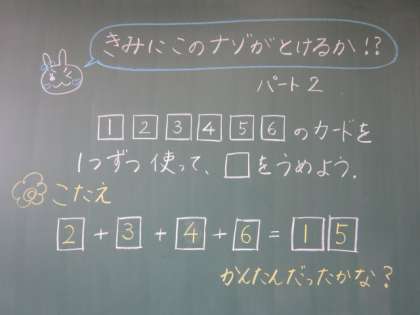 きみにこのナゾがとけるか!?
パート2
1 2 3 4 5 6 のカードを
1つずつ使って、□をうめよう.
こたえ
2 + 3 + 4 + 6 = 1 5
かんたんだったかな?